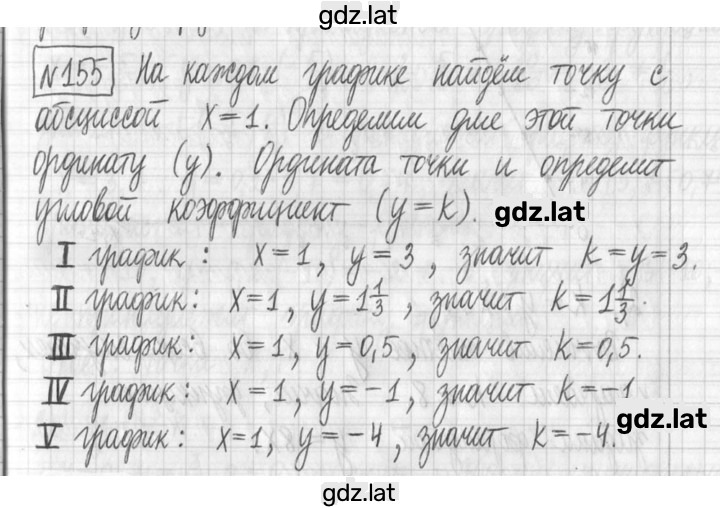 gdz.lat
№155 На каждом графике найдём точку с
абсциссой x=1. Определим для этой точки
ординату (y). Ордината точки и определит
угловой коэффициент (y=k). gdz.lat
I график: x=1, y=3, значит k=y=3.
II график: x=1, y=1 1/3, значит k=1 1/3.
III график: x=1, y=0,5, значит k=0,5.
IV график: x=1, y=-1, значит k=-1
gdz.lat
V график: x=1, y=-4, значит k=-4.
gdz.lat